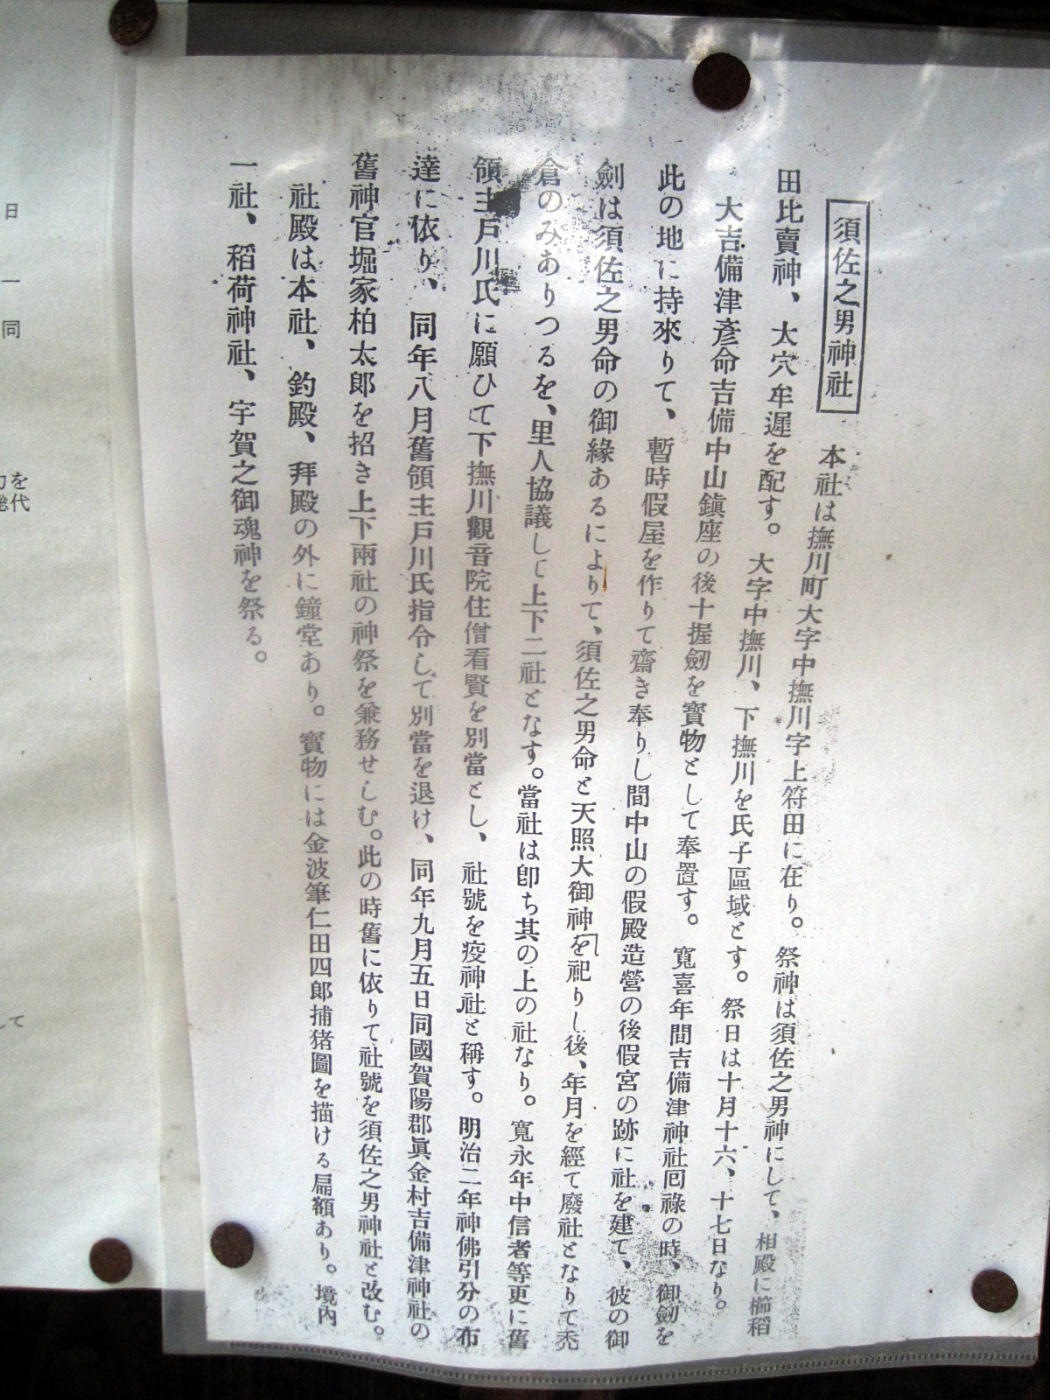 須佐之男神社　本社は撫川町大字中撫川字上符田に在り。祭神は須佐之男神にして、相殿に櫛稻
田比賣神、大穴牟遲を配す。大字中撫川、下撫川を氏子區域とす。祭日は十月十六、十七日なり。
大吉備津彦命吉備中山鎭座の後十握劒を寶物として奉置す。寬喜年間吉備津神社囘祿の時、御劒を
此の地に持來りて、暫時假屋を作りて齋き奉りし間中山の假殿造營の後假宮の跡に社を建て、彼の御
劍は須佐之男命の御緣あるによりて、須佐之男命と天照大御神を祀りし後、年月を經て廢社となりて禿
倉のみありつるを、里人協議して上下二社となす。當社は卽ち其の上の社なり。寬永年中信者等更に舊
領主戸川氏に願ひて下撫川觀音院住僧看賢を別當とし、社號を疫神社と稱す。明治二年神佛引分の布
達に依り、同年八月舊領主戸川氏指令して別當を退け、同年九月五日同國賀陽郡眞金村吉備津神社の
舊神官堀家柏太郎を招き上下兩社の神祭を兼務せしむ。此の時舊に依りて社號を須佐之男神社と改む。
社殿は本社、釣殿、拜殿の外に鐘堂あり。寳物には金波筆仁田四郎捕猪圖を描ける扁額あり。境內
一社、稻荷神社、宇賀之御魂神を祭る。
日　一　同
を
総代
して